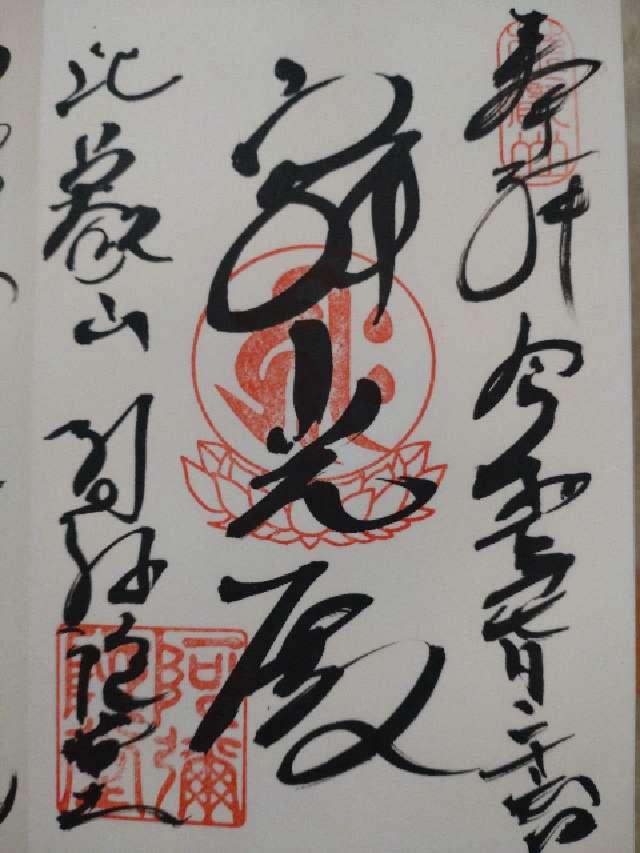 奉拝 令和 七月二十 日
寂光殿
比叡山 阿弥陀堂
阿彌
陀堂